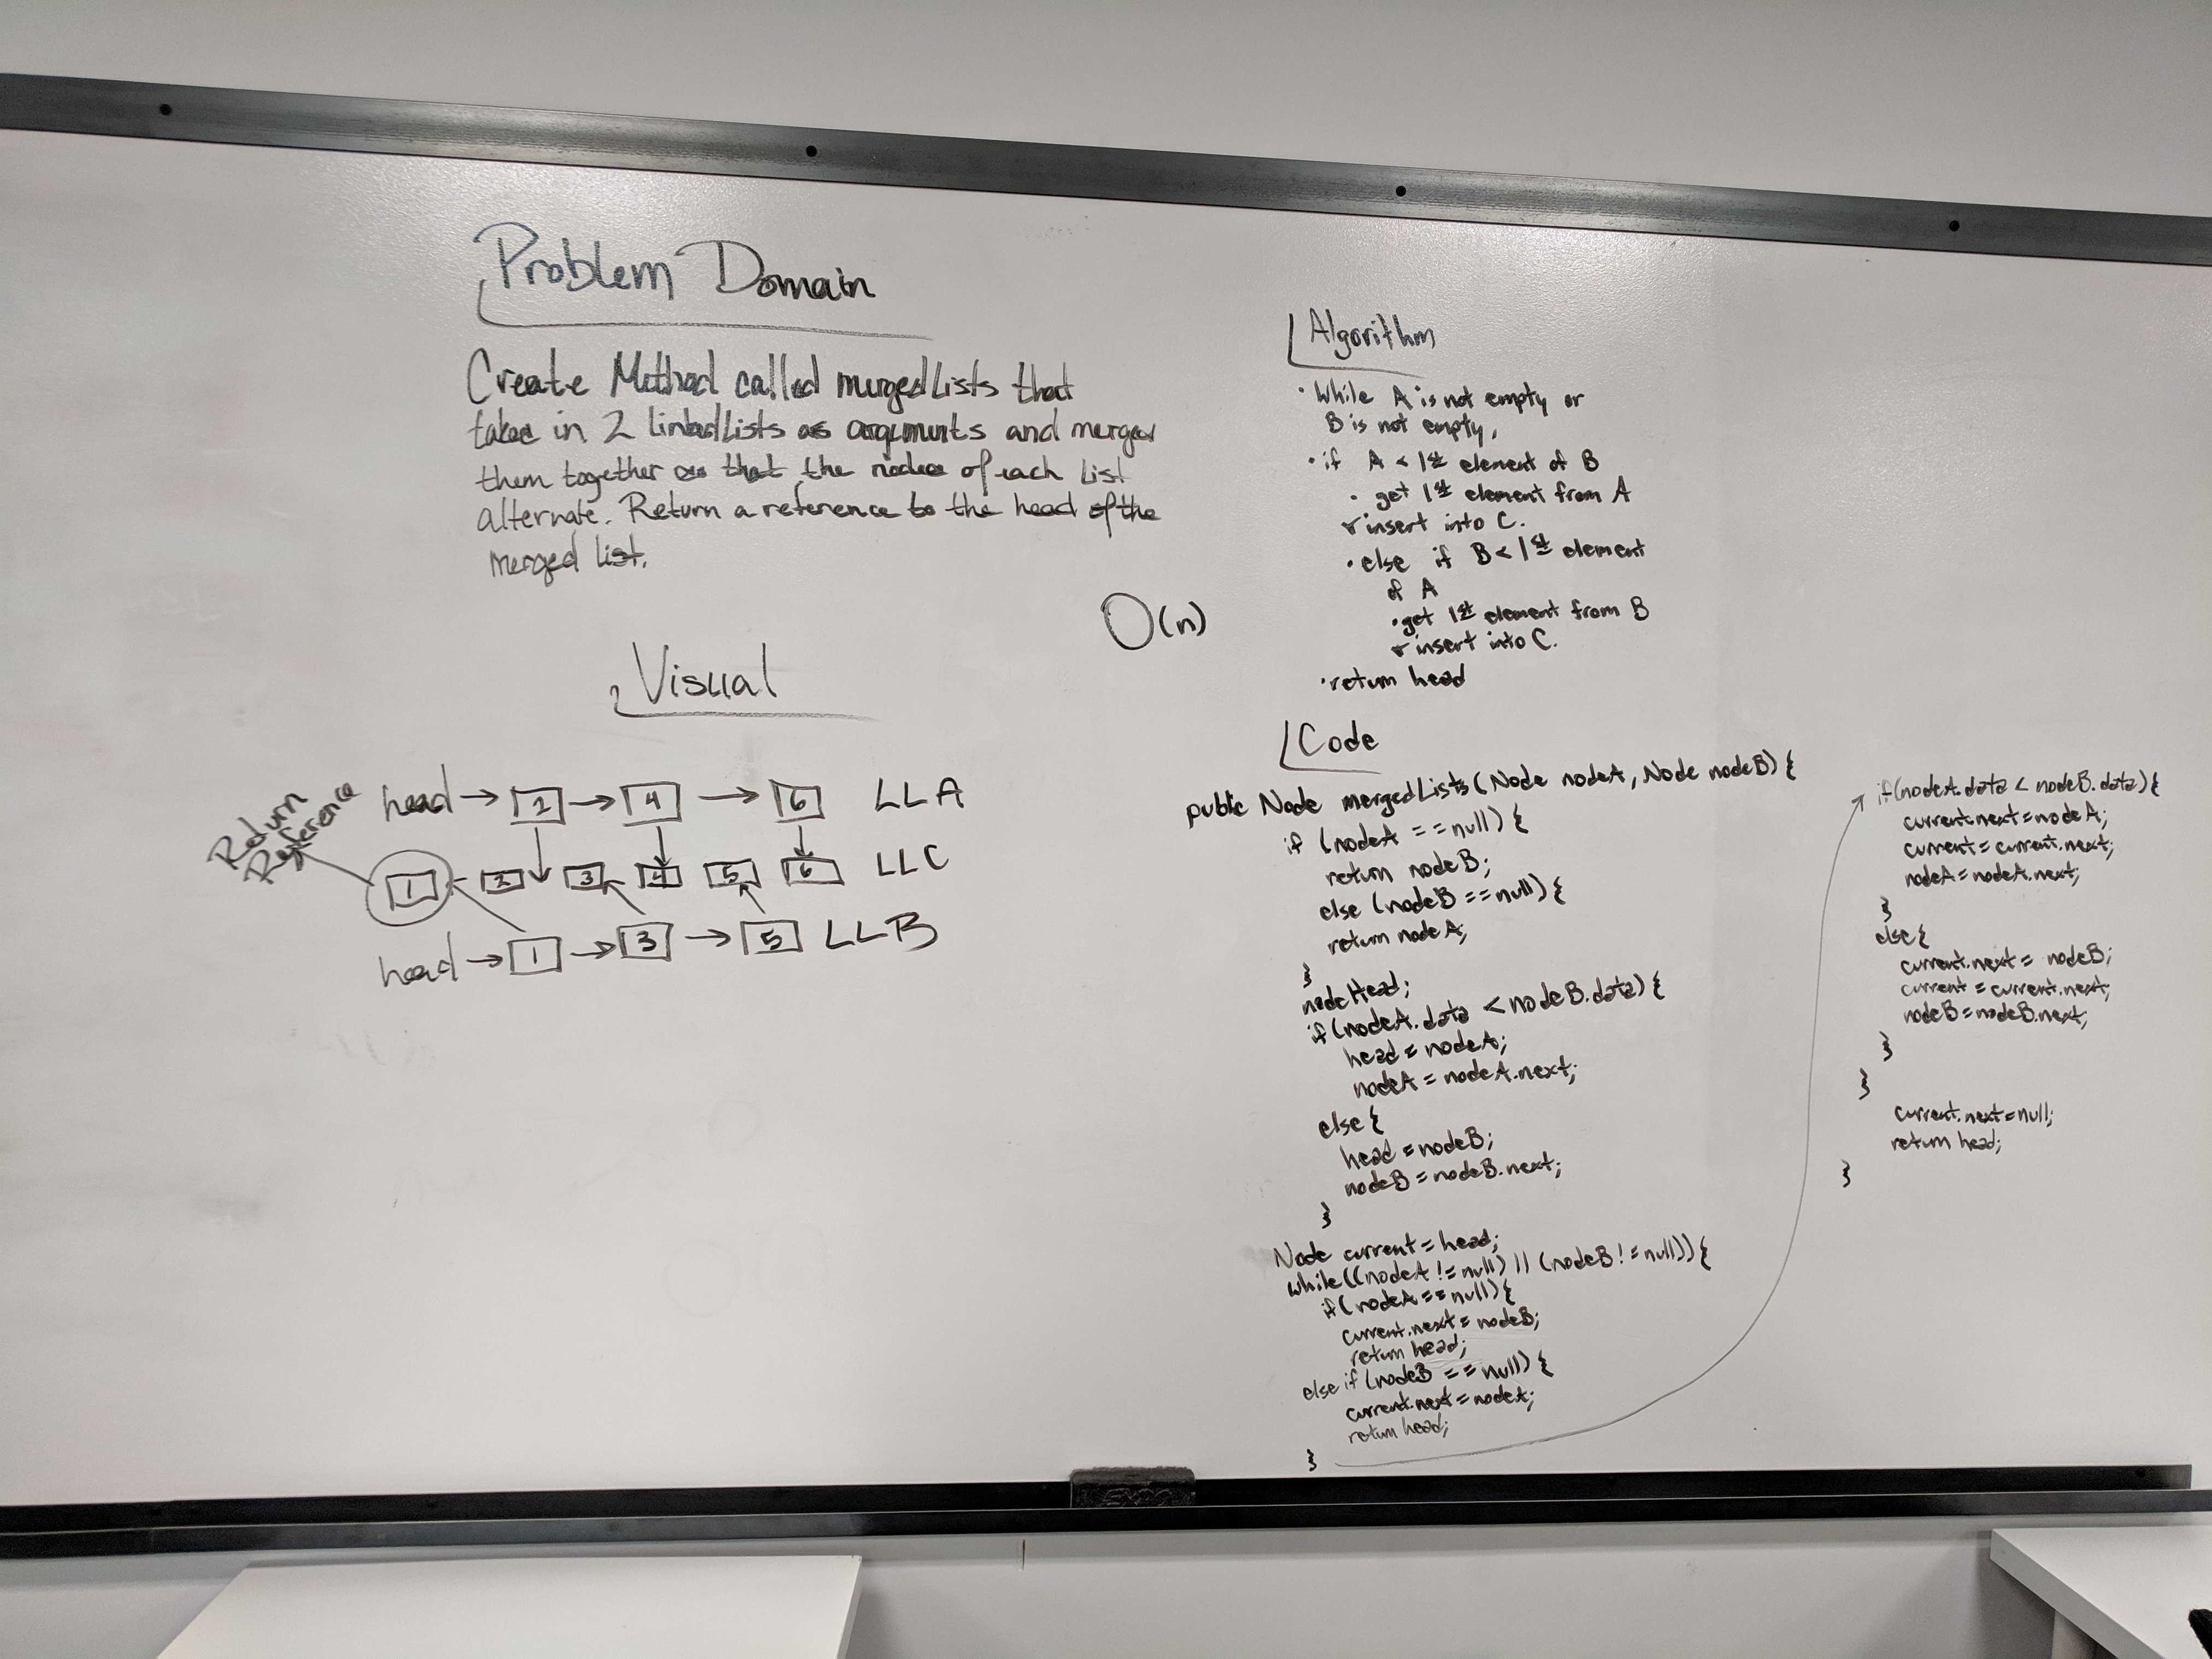 Problem Domain
Create Method called mergedLists that
takes in 2 linkedLists as arguments and merges
them together so that the nodes of each List
alternate. Return a reference to the head of the
merged list.
Visual
Return
Reference
head → 2 → 4 → 6 LLA
1 2 3 4 5 6 LLC
head → 1 → 3 → 5 LLB
O(n)
Algorithm
· While A is not empty or
B is not empty,
· if A < 1st element of B
· get 1st element from A
insert into C.
· else if B < 1st element
of A
· get 1st element from B
insert into C.
· return head
Code
public Node mergedLists(Node nodeA, Node nodeB){
if (nodeA == null) {
return nodeB;
else (nodeB == null) {
return nodeA;
}
node Head;
if (nodeA.data < nodeB.data) {
head = nodeA;
nodeA = nodeA.next;
else {
head = nodeB;
nodeB = nodeB.next;
}
Node current = head;
while((nodeA != null) || (nodeB != null)) {
if (nodeA == null) {
current.next = nodeB;
return head;
else if (nodeB == null) {
current.next = nodeA;
return head;
}
if(nodeA.data < nodeB.data) {
current.next = nodeA;
current = current.next;
nodeA = nodeA.next;
}
else {
current.next = nodeB;
current = current.next;
nodeB = nodeB.next;
}
}
current.next = null;
return head;
}
EXPO